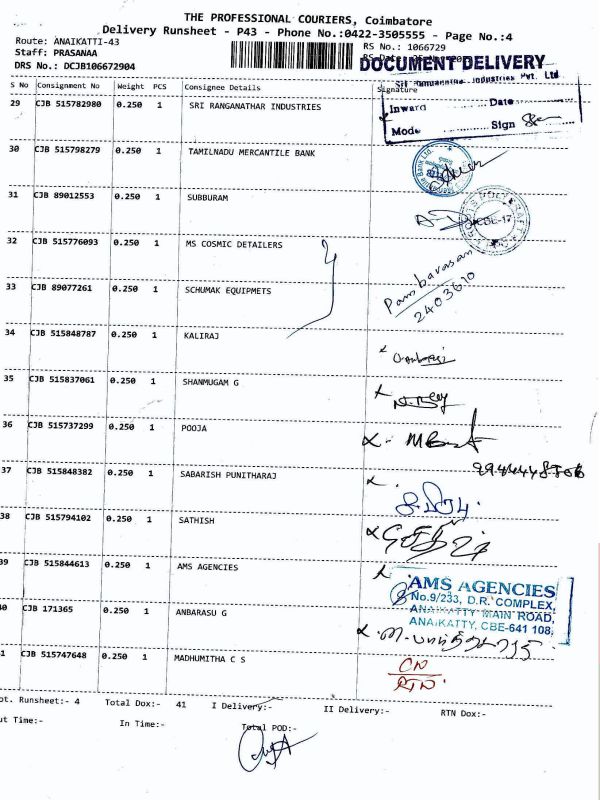 THE PROFESSIONAL COURIERS, Coimbatore
Delivery Runsheet - P43 - Phone No.:0422-3505555 - Page No.:4
Route: ANAIKATTI-43
RS No.: 1066729
Staff: PRASANAA
DOCUMENT DELIVERY
DRS No.: DCJB106672904
Industries Pvt. Ltd.
S No Consignment No Weight PCS Consignee Details Signature
Inward Date
Mode Sign
29 CJB 515782980 0.250 1 SRI RANGANATHAR INDUSTRIES
30 CJB 515798279 0.250 1 TAMILNADU MERCANTILE BANK
31 CJB 89012553 0.250 1 SUBBURAM
32 CJB 515776093 0.250 1 MS COSMIC DETAILERS
33 CJB 89077261 0.250 1 SCHUMAK EQUIPMETS
2403610
34 CJB 515848787 0.250 1 KALIRAJ
35 CJB 515837061 0.250 1 SHANMUGAM G
36 CJB 515737299 0.250 1 POOJA
37 CJB 515848382 0.250 1 SABARISH PUNITHARAJ
38 CJB 515794102 0.250 1 SATHISH
39 CJB 515844613 0.250 1 AMS AGENCIES
AMS AGENCIES
No.9/233, D.R. COMPLEX,
ANAIKATTY MAIN ROAD,
ANAIKATTY, CBE-641 108.
40 CJB 171365 0.250 1 ANBARASU G
41 CJB 515747648 0.250 1 MADHUMITHA C S
CN
RTN
Tot. Runsheet:- 4 Total Dox:- 41 I Delivery:- II Delivery:- RTN Dox:-
Out Time:- In Time:- Total POD:-